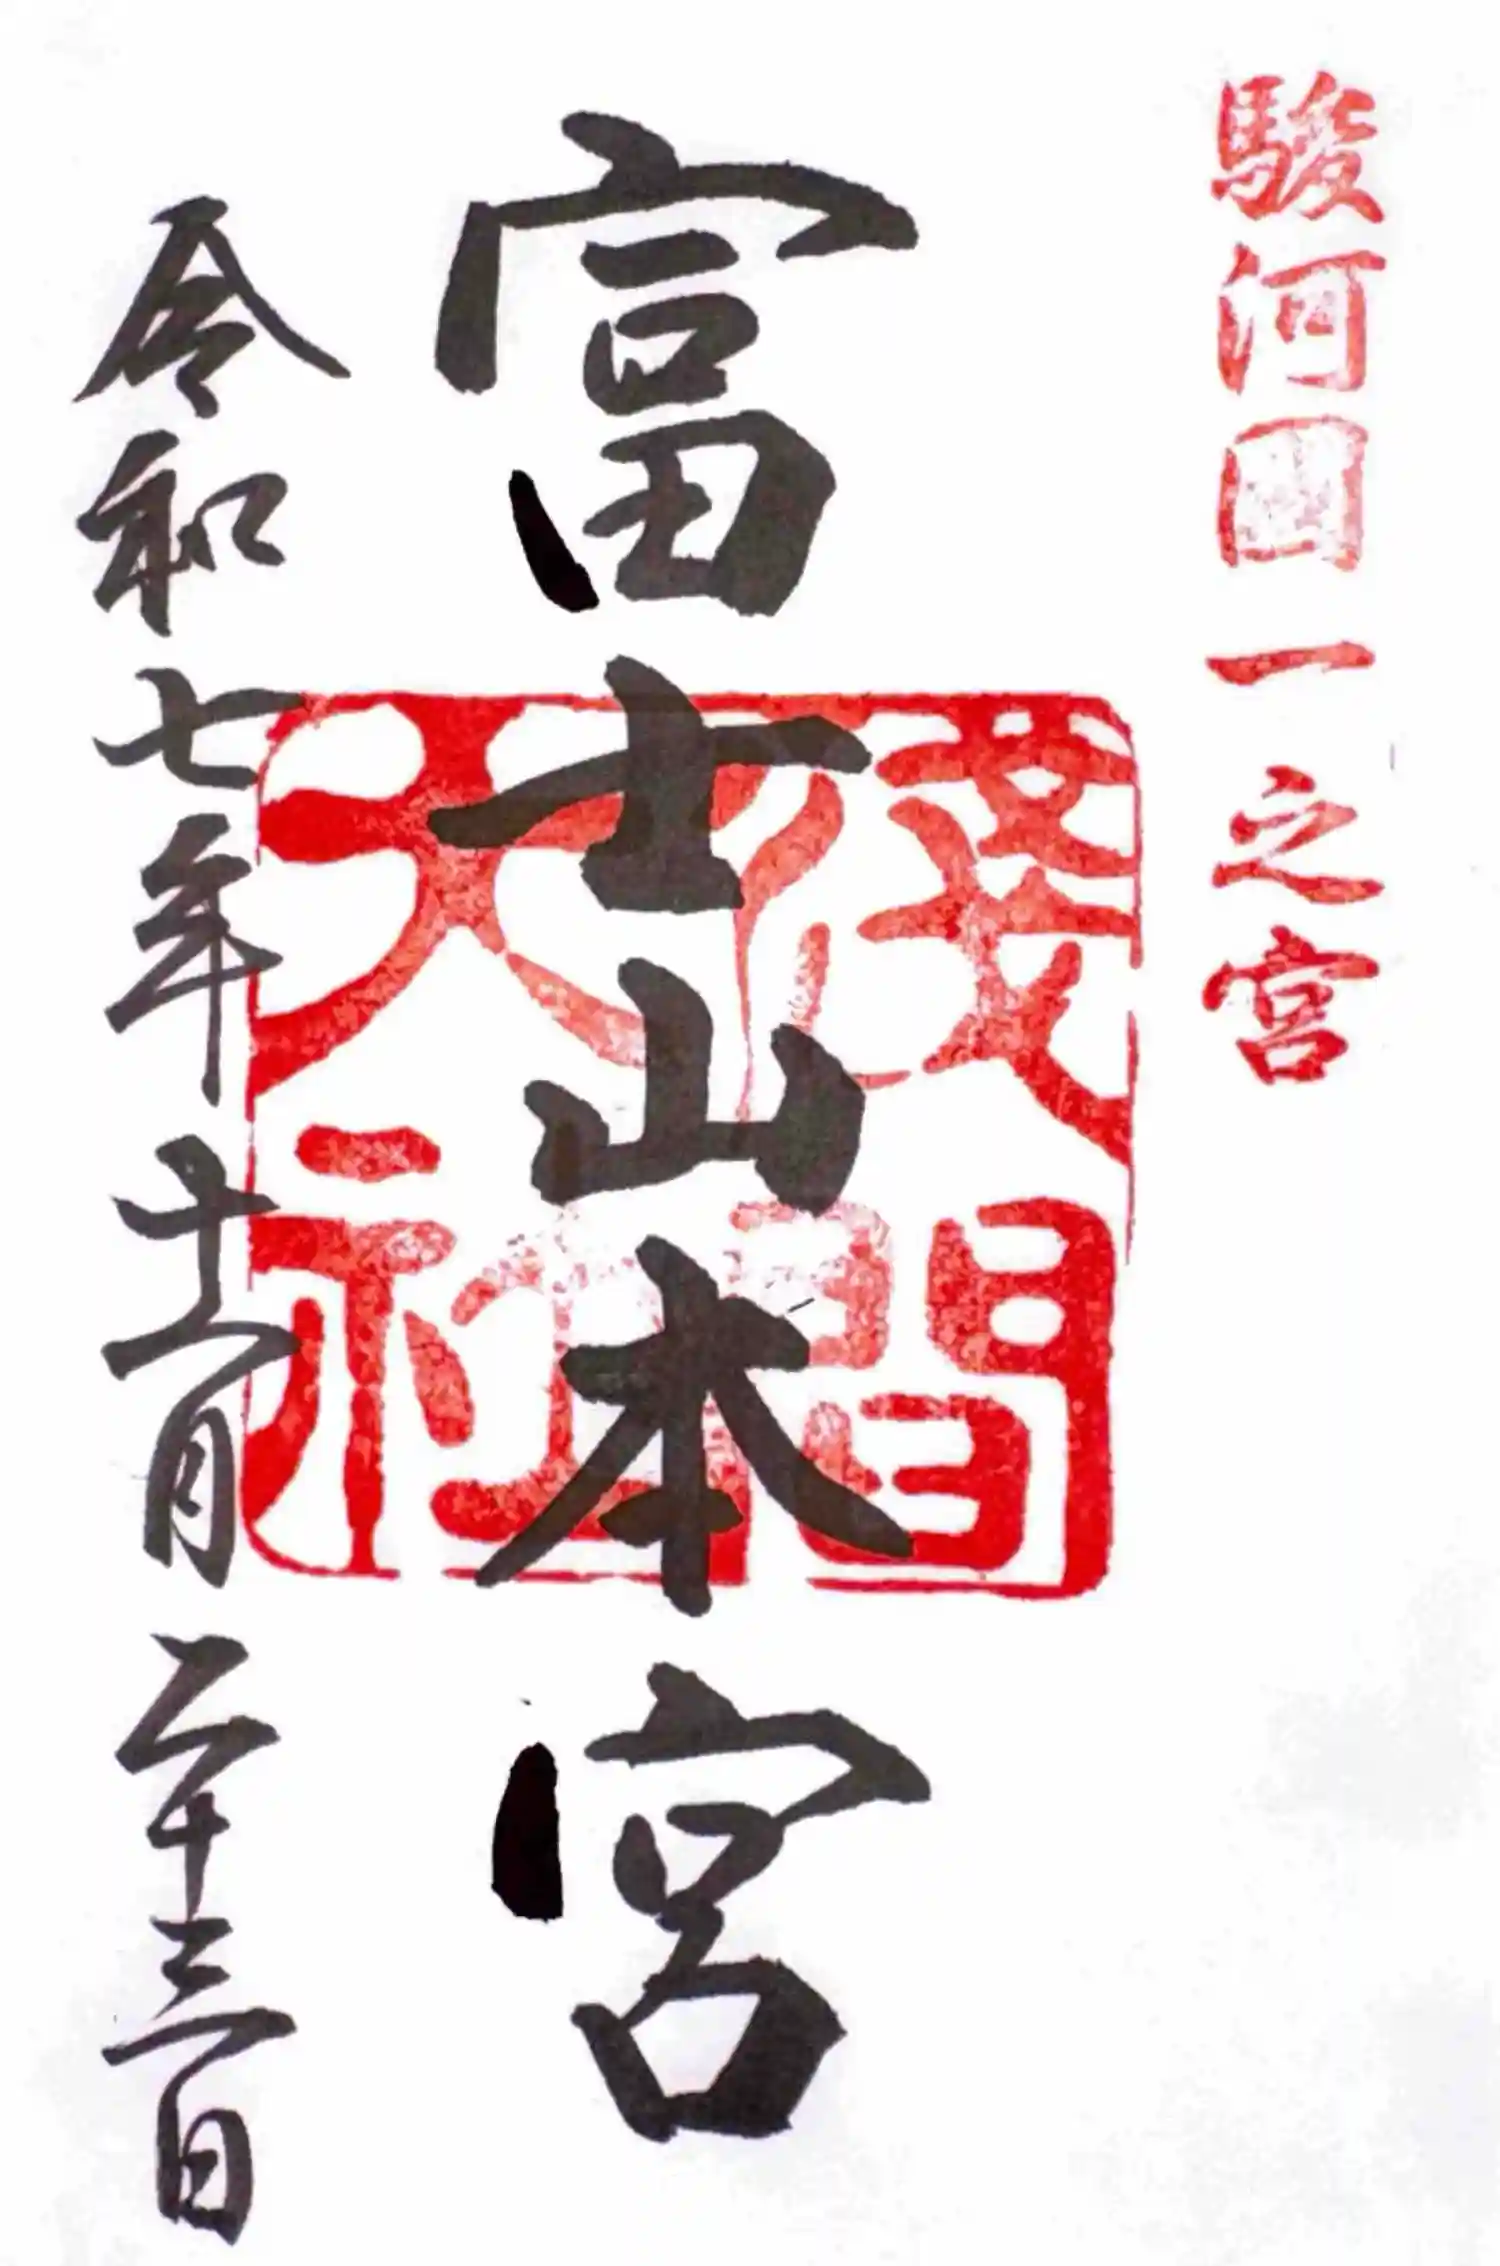 駿河國一之宮
富士山本宮
淺間
大社
令和七年十一月二十三日